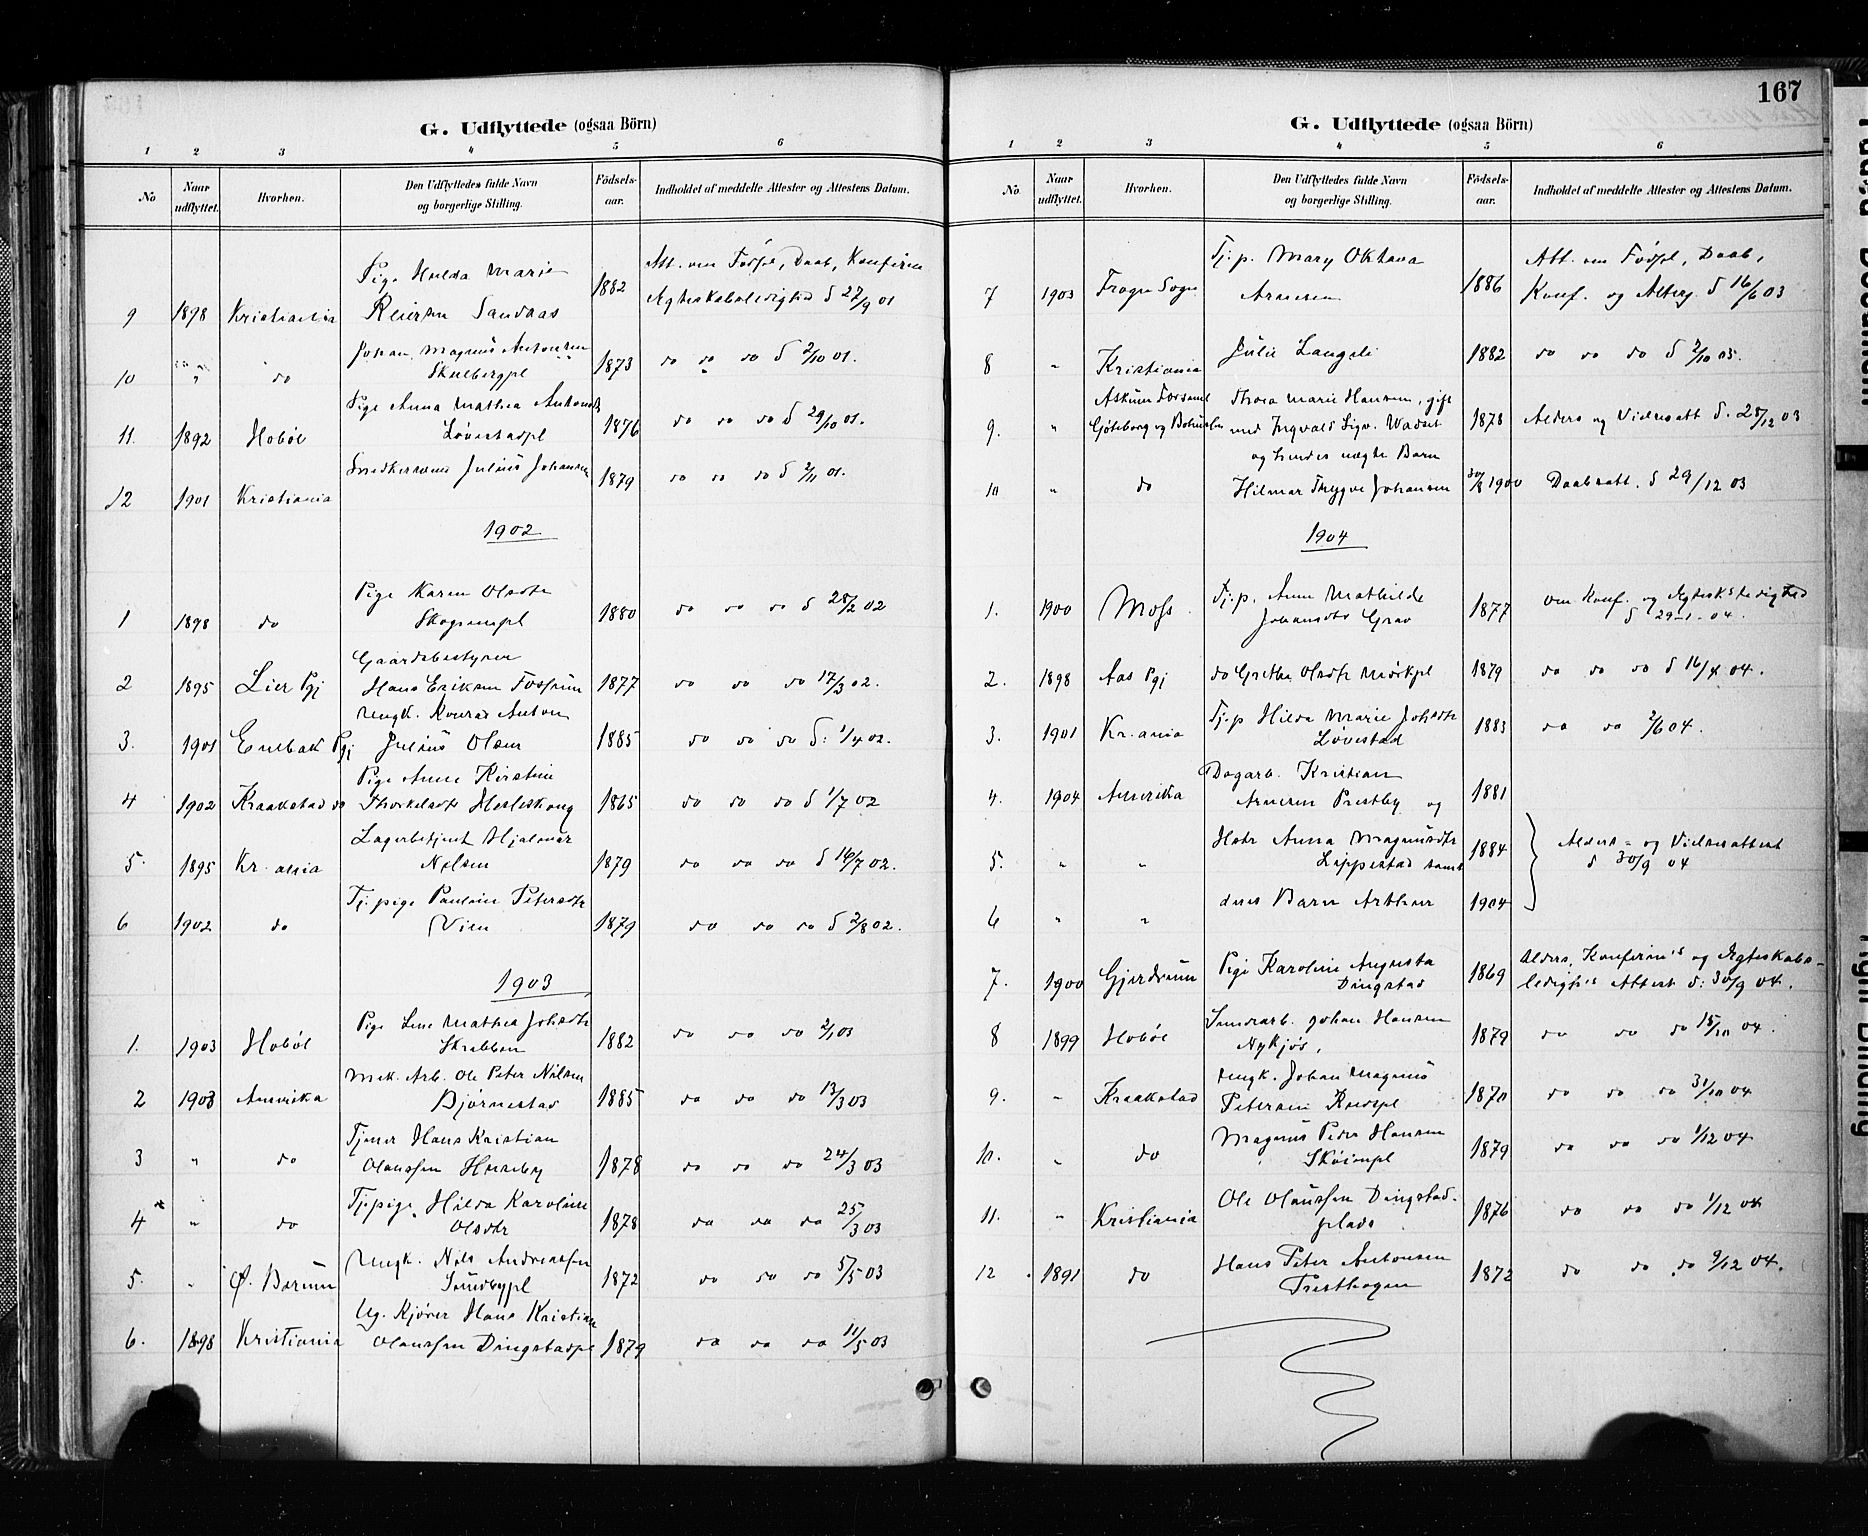 167
G. Udflyttede (ogsaa Börn)
1 2 3 4 5 6
No Naar udflyttet. Hvorhen. Den Udflyttedes fulde Navn og borgerlige Stilling. Födsels-aar. Indholdet af meddelte Attester og Attestens Datum.
Pige Hulda Marie Att. om Födsel, Daab, Konfirm
9 1898 Kristiania Reiersen Sandaas 1882 Ægteskabsledighed d 27/9 01
10 " do Johan Magnus Antonsen 1873 do do do d 2/10 01.
Skulbergpl
11. 1892 Hobøl Pige Anna Mathea Antonsdtr 1876 do do do d 29/10 01.
Løvestadpl
12 1901 Kristiania Snedkersvend Julius Johansen 1879 do do do d 2/11 01.
1902
1 1898 do Pige Karen Olsdtr 1880 do do do d 28/2 02
2 1895 Lier Pgj Gaardsbestyrer
Hans Eriksen Fossum 1877 do do do 17/3 02.
3. 1901 Enebak Pgj Ungk. Konrad Anton
Julius Olsen 1885 do do do d: 1/4 02.
4 1902 Kraakstad do Pige Anne Kirstine
Thorkelsdtr 1865 do do do d 1/7 02
5. 1895 Kr.ania Lagerbetjent Hjalmar
Nilsen 1879 do do do d 16/7 02.
6 1902 do Tj.pige Pauline Petersdtr
Vien 1879 do do do d 2/8 02.
1903
1. 1903 Hobøl Pige Lene Mathea Johsdtr
Skrabben 1882 do do do 2/1 03
2 1903 Amerika Mek. Arb. Ole Peter Nilsen
Bjørnestad 1885 do do do 13/3 03
3 " do Tjener Hans Kristian
Olaussen Huseby 1878 do do do 24/3 03
4 " do Tj.pige Hilda Karoline
Olsdtr 1878 do do do 25/3 03
5. " Ø. Bærum Ungk. Nils Andreassen
Sundbypl 1872 do do do 5/5 03
6. 1898 Kristiania Ug. Kjører Hans Kristian
Olaussen Dingstadpl 1879 do do do 11/5 03
G. Udflyttede (ogsaa Börn)
1 2 3 4 5 6
No. Naar udflyttet. Hvorhen. Den Udflyttedes fulde Navn og borgerlige Stilling. Födsels-aar. Indholdet af meddelte Attester og Attestens Datum.
Tj.p. Mary Oktava Att. om Födsel, Daab,
7 1903 Frogn Sogn Arnesen 1886 Konf. og Alterg. d 16/6 03
8 " Kristiania Julie Langsli 1882 do do do d 2/10 03.
9. " Askum Forsaml Thora Marie Hansen, gift
Göteborg og Bohuslen med Ingvald Sigv. Wadset 1878 Alders og Vielsesatt d. 28/12 03
og hendes uægte Barn
10 " do Hilmar Thrygve Johansen 30/8 1900 Daabsatt. d 29/12 03
1904
1. 1900 Moss Tj.p. Anne Mathilde
Johansdtr Grav 1877 om Konf. og Ægteskbledighed
d 29-1-04.
2. 1898 Aas Pgj do Grethe Olsdtr Mörkpl 1879 do do do d 16/4 04.
3. 1901 Kr.ania Tj.p Hilda Marie Johsdtr
Løvestad 1883 do do 2/6 04.
4. 1904 Amerika Dagarb. Kristian
Arnesen Prestby og 1881
5. " " Hstr Anna Magnusdtr 1884 Alders- og Vielsesattest
Lippestad samt d 30/9 04
6 " " deres Barn Arthur 1904
7. 1900 Gjerdrum Pige Karoline Augusta
Dingstad 1869 Alders, Konfirm's og Ægteskabs-
ledigh's Attest d: 30/9 04.
8 1899 Hobøl Johan Hansen
Nykjøs, 1879 do do do 15/10 04.
9. " Kraakstad Ungk. Johan Magnus
Petersen 1870 do do do 31/10 04
10. " do Magnus Peder Hansen
1879 do do do 1/12 04
11. " Kristiania Ole Olaussen Dingstad-
plads 1876 do do do 1/12 04
12. 1891 do Hans Peter Antonsen
Presthagen 1872 do do do 9/12 04.